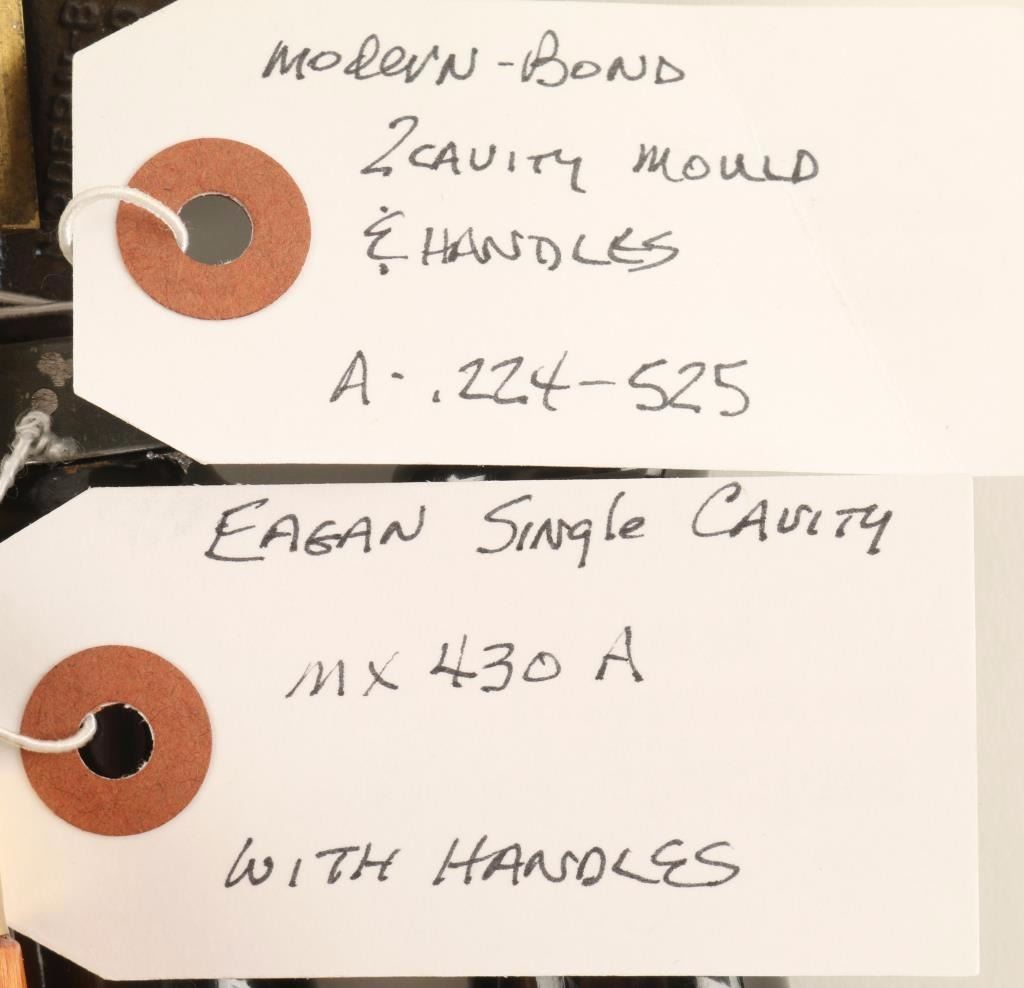 MODERN-BOND
2 CAVITY MOULD
& HANDLES
A- .224-525
EAGAN Single CAVITY
MX 430 A
WITH HANDLES